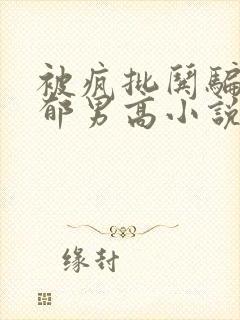 被疯批闵骗
郁男高小説
缘封